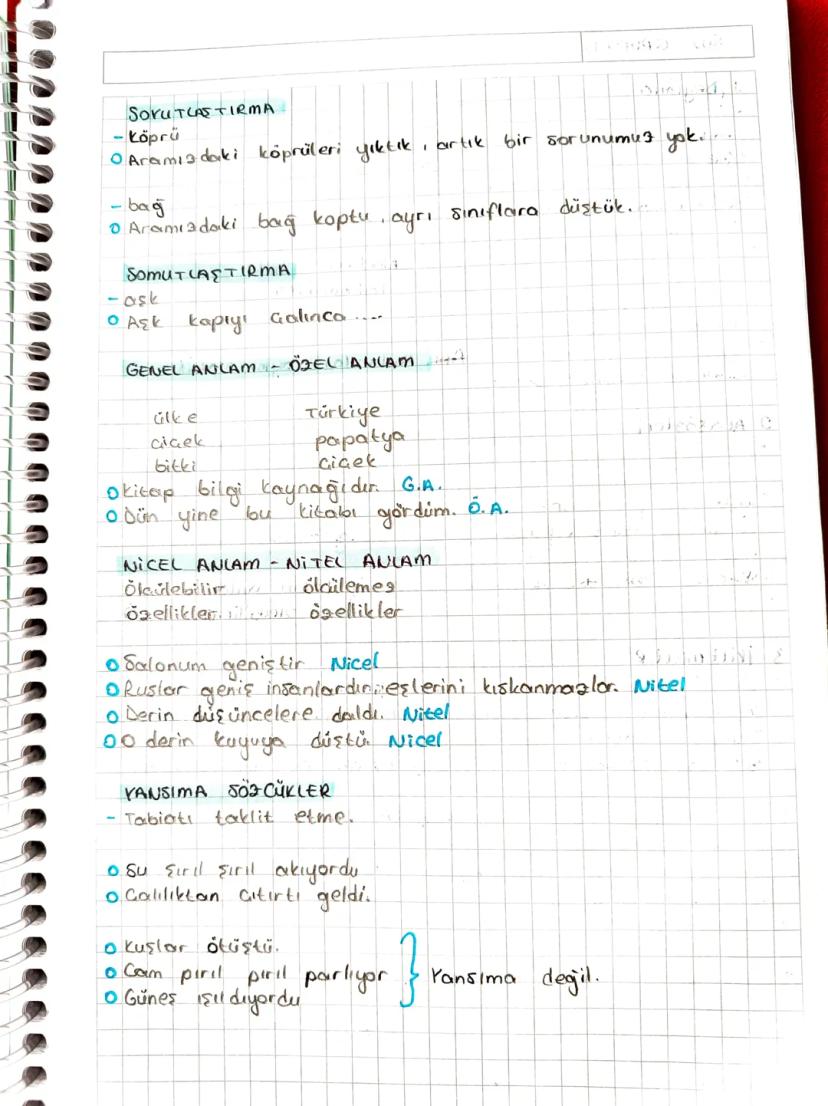 SOYUTLAŞTIRMA
- Köprü
o Aramızdaki köprüleri yıktık, artık bir sorunumuz yok.
- bağ
o Aramızdaki bağ koptu, ayrı sınıflara düştük.
SOMUTLAŞTIRMA
- aşk
o Aşk kapıyı çalınca ....
GENEL ANLAM - ÖZEL ANLAM
ülke Türkiye
çiçek papatya
bitki çiçek
o Kitap bilgi kaynağıdır. G.A.
o Dün yine bu kitabı gördüm. Ö.A.
NİCEL ANLAM - NİTEL ANLAM
Ölçülebilir ölçülemez
özellikler özellikler
o Salonum geniştir Nicel
o Ruslar geniş insanlardır; eşlerini kıskanmazlar. Nitel
o Derin düşüncelere daldı. Nitel
o O derin kuyuya düştü. Nicel
YANSIMA SÖZCÜKLER
- Tabiatı taklit etme.
o Su şırıl şırıl akıyordu
o Çalılıktan çıtırtı geldi.
o Kuşlar ötüştü.
o Cam pırıl pırıl parlıyor } Yansıma değil.
o Güneş ışıldıyordu